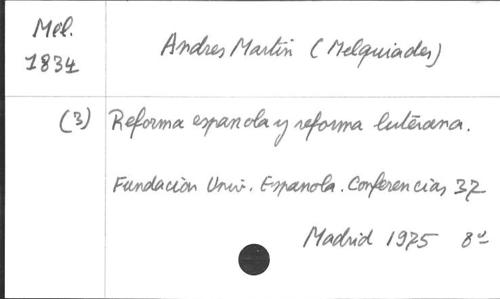 Mél.
1834
Andres Martin (Melquiades)
(3) Reforma espanola y reforma luterana.
Fundación Univ. Espanola. Conferencias 37
Madrid 1975 8º